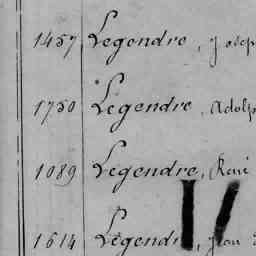 1457 Legendre, Josep
1750 Legendre, Adolp
1089 Legendre, René
1614 Legendre, Jean